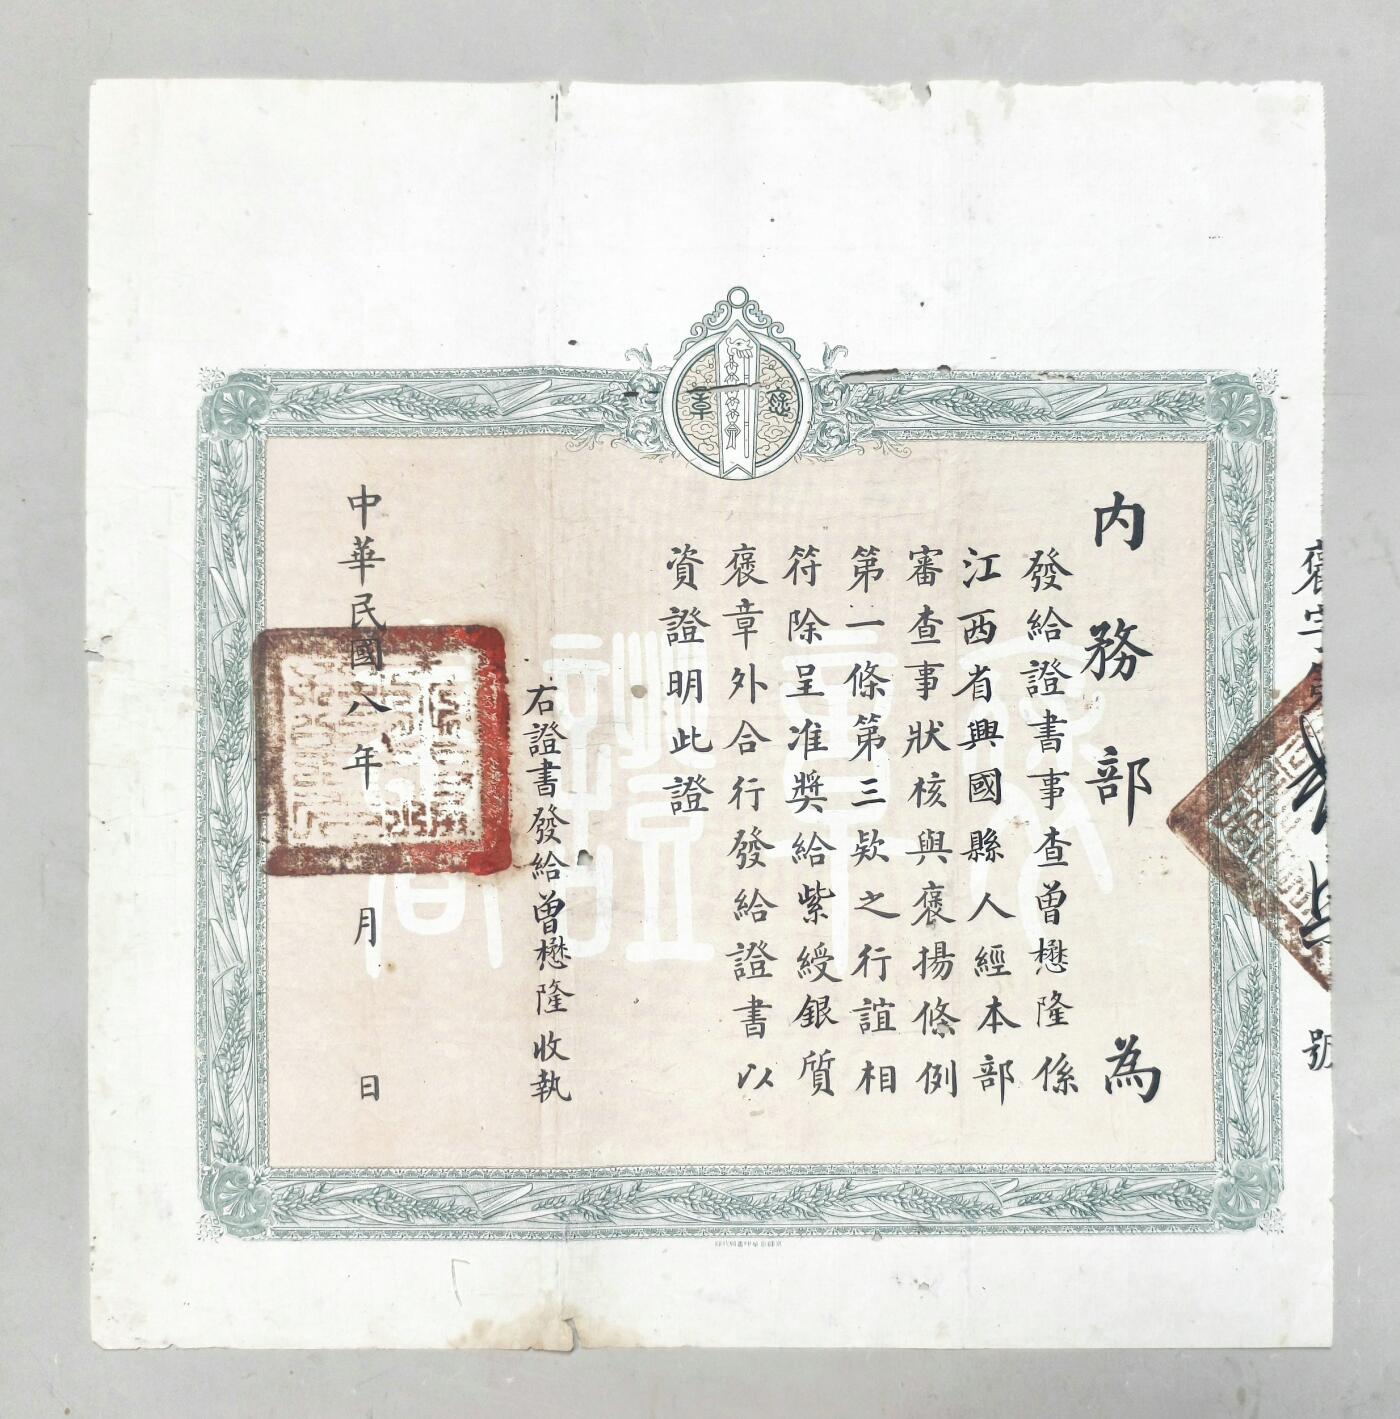 褒章
內務部 為
發給證書事查曾懋隆係
江西省興國縣人經本部
審查事狀核與褒揚條例
第一條第三欵之行誼相
符除呈准獎給紫綬銀質
褒章外合行發給證書以
資證明此證
右證書發給曾懋隆收執
中華民國八年 月 日
褒章證書
褒字 號